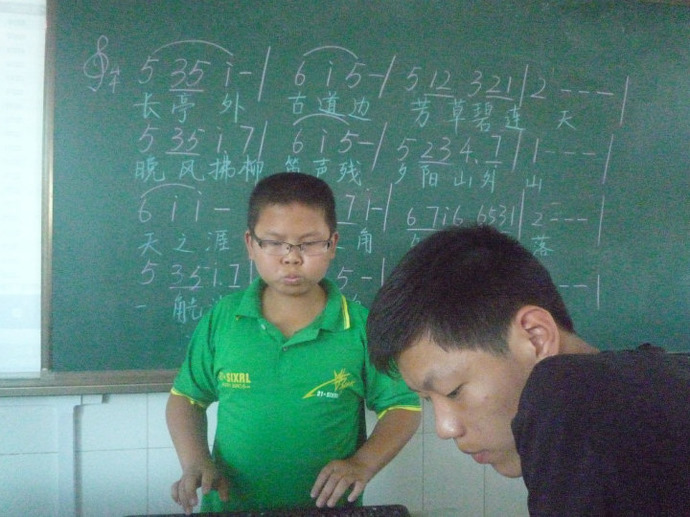 5 35 i - | 6 i 5 - | 5 12 321 | 2 - - - |
长亭外 古道边 芳草碧连天
5 35 i. 7 | 6 i 5 - | 5 23 4. 7 | 1 - - - |
晚风拂柳笛声残 夕阳山外山
6 i i - 7 i - | 67i6 6531 | 2 - - - |
天之涯 角 落
5 35 i. 7 5 - | - - |
一
SIXRL